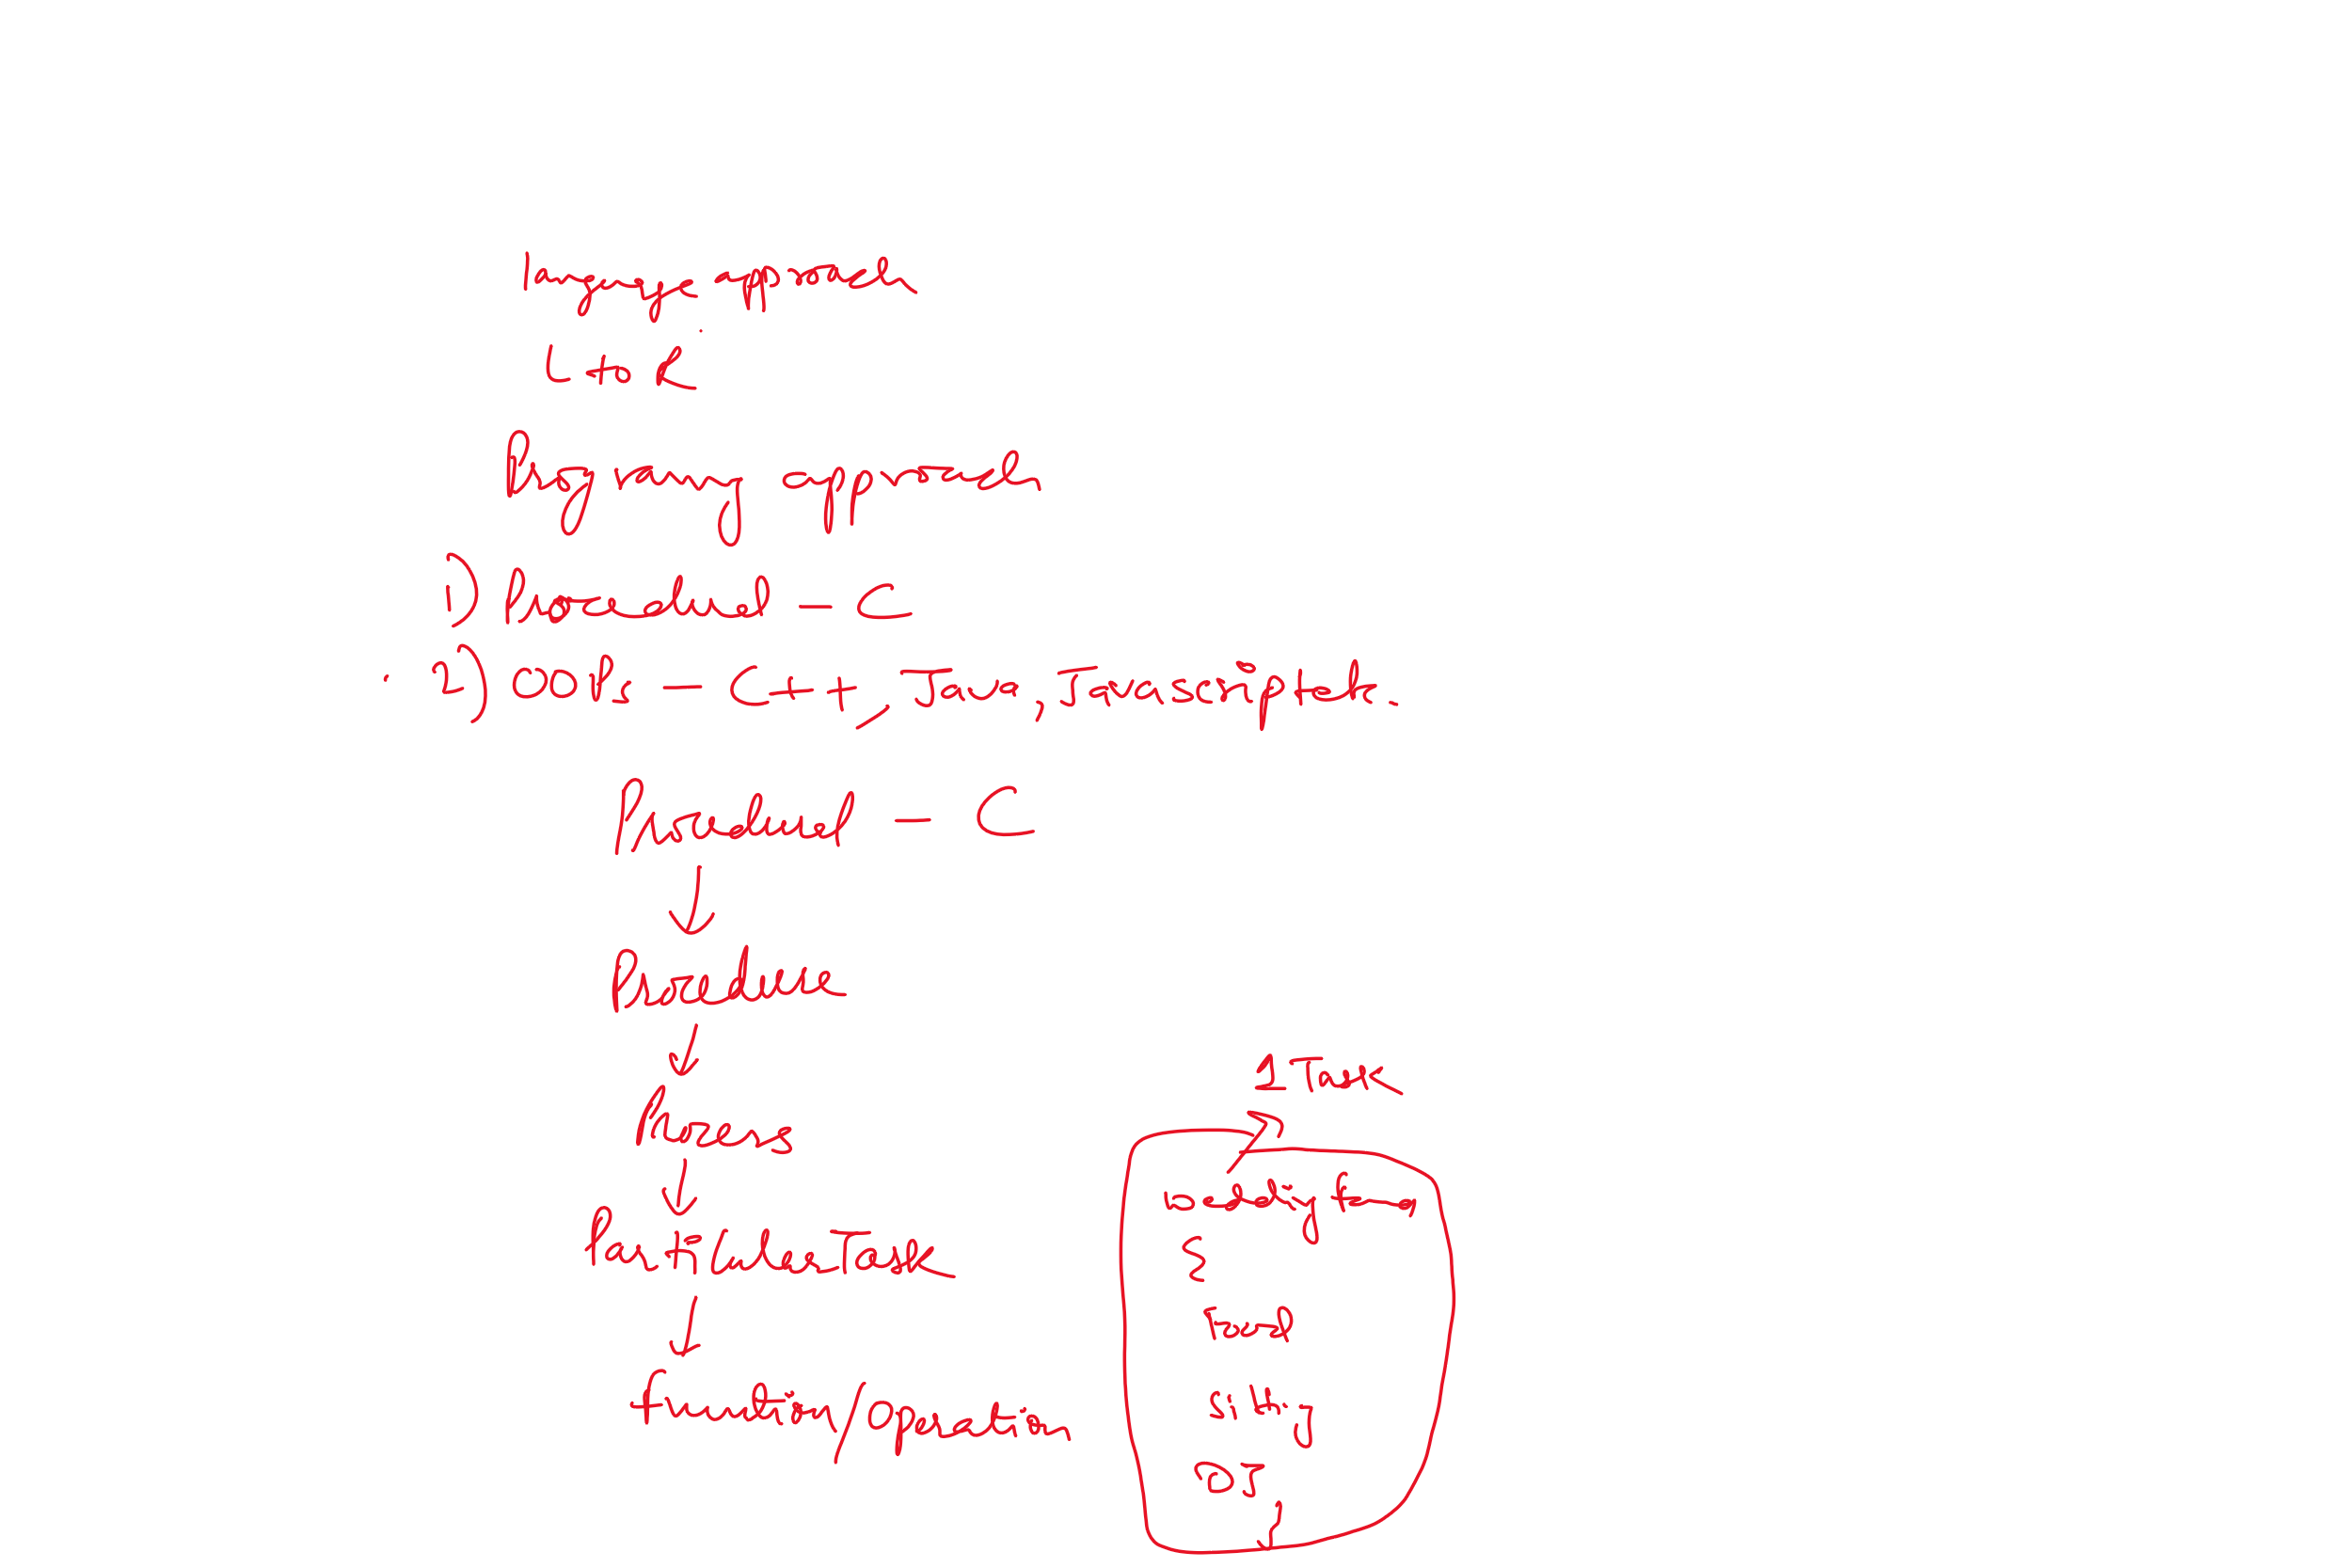 language approach
L to R
Prog lang approach
1) Procedural - C
2) OOPs - C++, Java, Javascript etc.
Procedural - C
Procedure
Process
Particular Task
function/operation
1 Task
{
Food
sitting
DJ
}